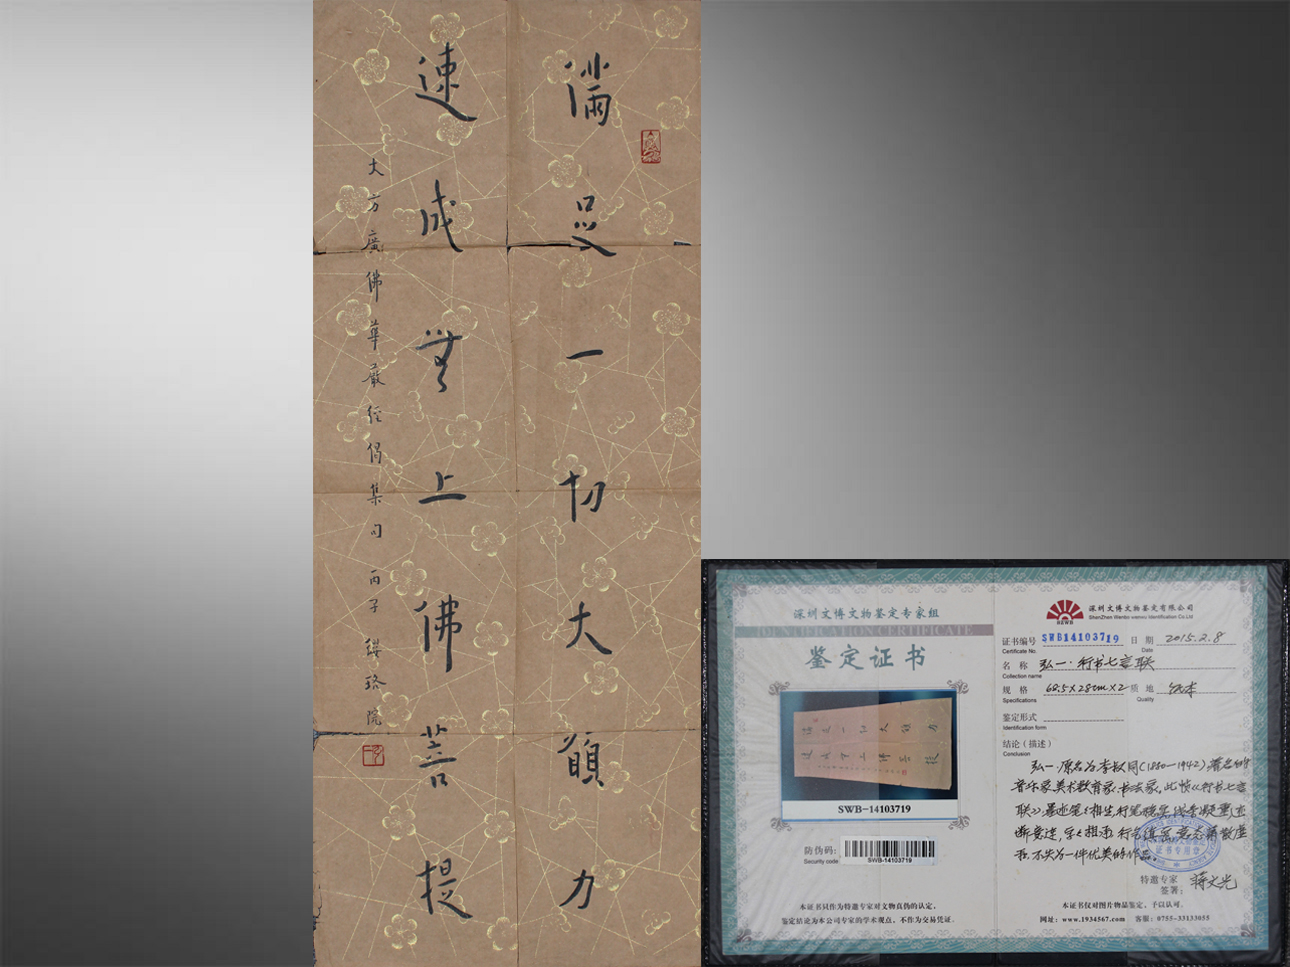 滿足一切大願力
速成無上佛菩提
大方廣佛華嚴經偈集句 丙子 纓珞院
深圳文博文物鉴定专家组
IDENTIFICATION CERTIFICATE
鉴定证书
SWB-14103719
防伪码:
Security code
SWB-14103719
本证书只作为特邀专家对文物真伪的认定,
鉴定结论为本公司专家的学术观点, 不作为交易凭证。
深圳文博文物鉴定有限公司
ShenZhen Wenbo wenwu Identification Co Ltd
证书编号 SWB14103719 日 期 2015.2.8
Certificate No. Date
名 称 弘一·行书七言联
Collection name
规 格 68.5×28cm×2 质 地 纸本
Specifications Quality
鉴定形式
Identification form
结论(描述)
Conclusion
弘一·原名为李叔同(1880—1942),著名的
音乐家.美术教育家.书法家,此帧《行书七言
联》,墨迹笔笔相生,行笔稳实,线条凝重,迹
断意连,字字相承,行气
不失为一件优美的作品。
特邀专家
签署: 蒋文光
本证书仅对图片物品鉴定, 予以认可.
网址: www.1934567.com 客服: 0755-33133055